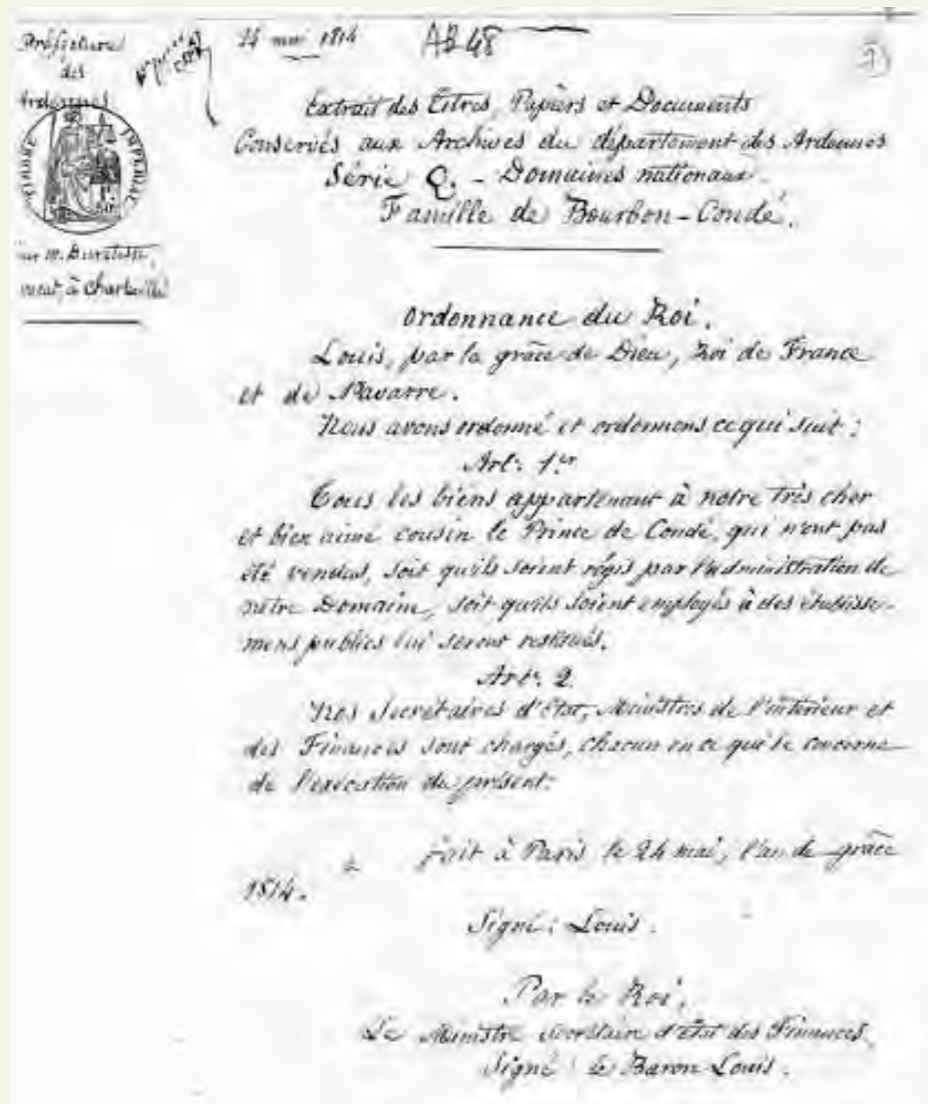 Préfecture
des
Ardennes
24 mai 1814
AB 48
Extrait des Titres, Papiers et Documents
Conservés aux Archives du département des Ardennes
Série Q. - Domaines nationaux.
Famille de Bourbon-Condé.
à Charleville
Ordonnance du Roi.
Louis, par la grâce de Dieu, Roi de France
et de Navarre.
Nous avons ordonné et ordonnons ce qui suit :
Art. 1er
Tous les biens appartenant à notre très cher
et bien aimé cousin le Prince de Condé, qui n'ont pas
été vendus, soit qu'ils soient régis par l'administration de
notre Domaine, soit qu'ils soient employés à des établisse-
mens publics lui seront restitués.
Art. 2.
Nos Secrétaires d'état, Ministres de l'intérieur et
des Finances sont chargés, chacun en ce qui le concerne
de l'exécution du présent.
fait à Paris le 24 mai, l'an de grâce
1814.
Signé : Louis.
Par le Roi,
Le Ministre Secrétaire d'état des Finances,
Signé : le Baron Louis.